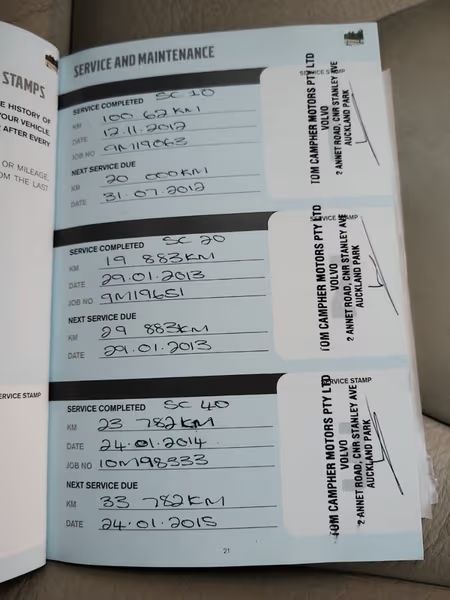 STAMPS
E HISTORY OF
YOUR VEHICLE
AFTER EVERY
OR MILEAGE,
OM THE LAST
ERVICE STAMP
SERVICE AND MAINTENANCE
SERVICE COMPLETED SC 10
KM 100 62KM
DATE 12.11.2012
JOB NO 9M19063
NEXT SERVICE DUE
KM 20 000KM
DATE 31.07.2012
SERVICE STAMP
TOM CAMPHER MOTORS PTY LTD
VOLVO
2 ANNET ROAD, CNR STANLEY AVE
AUCKLAND PARK
SERVICE COMPLETED SC 20
KM 19 883KM
DATE 29.01.2013
JOB NO 9M19651
NEXT SERVICE DUE
KM 29 883KM
DATE 29.01.2013
SERVICE STAMP
TOM CAMPHER MOTORS PTY LTD
VOLVO
2 ANNET ROAD, CNR STANLEY AVE
AUCKLAND PARK
SERVICE COMPLETED SC 40
KM 23 782KM
DATE 24.01.2014
JOB NO 10M98333
NEXT SERVICE DUE
KM 33 782KM
DATE 24.01.2015
SERVICE STAMP
TOM CAMPHER MOTORS PTY LTD
VOLVO
2 ANNET ROAD, CNR STANLEY AVE
AUCKLAND PARK
21